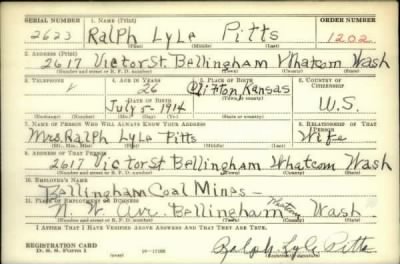 SERIAL NUMBER 1. NAME (Print) ORDER NUMBER
2623 Ralph Lyle Pitts 1202
(First) (Middle) (Last)
2. ADDRESS (Print)
2617 Victor St. Bellingham Whatcom Wash
(Number and street or R. F. D. number) (Town) (County) (State)
3. TELEPHONE 4. AGE IN YEARS 5. PLACE OF BIRTH 6. COUNTRY OF CITIZENSHIP
26 Clifton Kansas
DATE OF BIRTH (Town or county)
July 5-1914 U.S.
(Mo.) (Day) (Yr.) (State or country)
7. NAME OF PERSON WHO WILL ALWAYS KNOW YOUR ADDRESS 8. RELATIONSHIP OF THAT PERSON
Mrs. Ralph Lyle Pitts Wife
(Mr., Mrs., Miss) (First) (Middle) (Last)
9. ADDRESS OF THAT PERSON
2617 Victor St Bellingham Whatcom Wash
(Number and street or R. F. D. number) (Town) (County) (State)
10. EMPLOYER'S NAME
Bellingham Coal Mines -
11. PLACE OF EMPLOYMENT OR BUSINESS
N. W. Av. Bellingham Whatcom Wash
(Number and street or R. F. D. number) (Town) (County) (State)
I AFFIRM THAT I HAVE VERIFIED ABOVE ANSWERS AND THAT THEY ARE TRUE.
REGISTRATION CARD
D. S. S. Form 1 Ralph Lyle Pitts
(Registrant's signature)